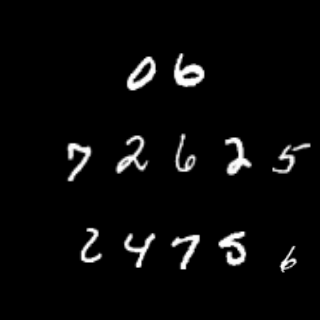 06
72625
24756